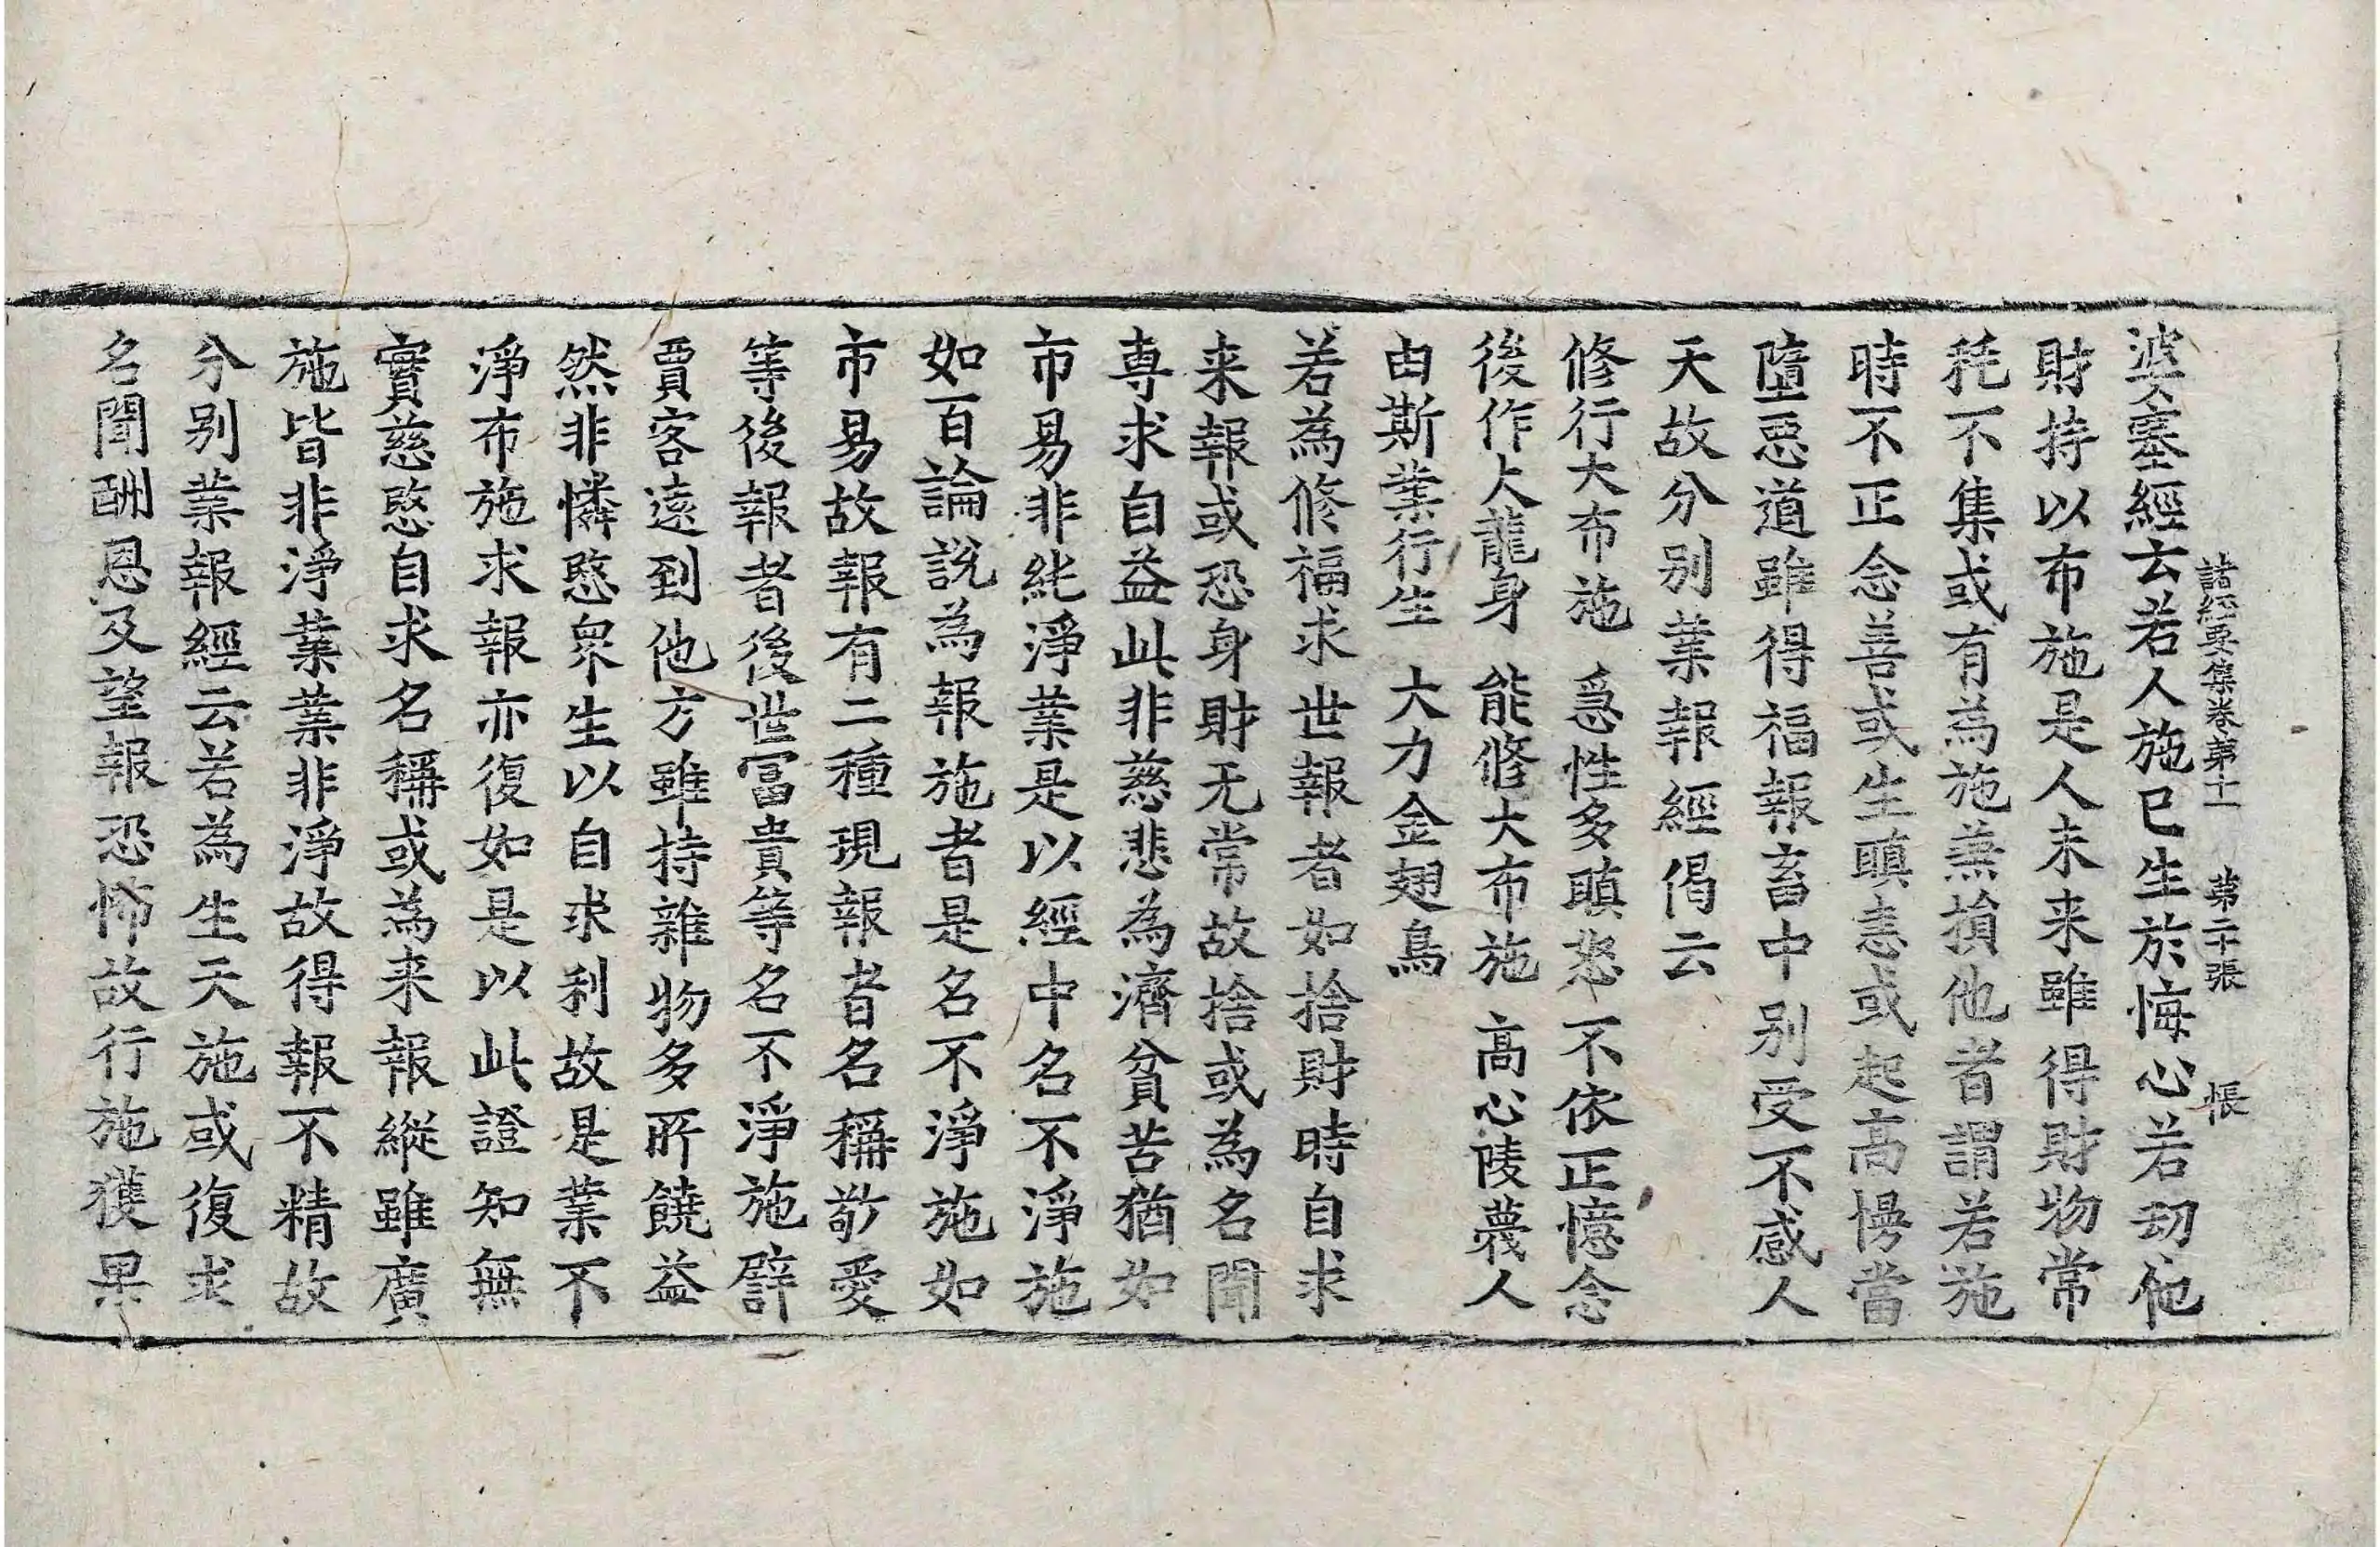 諸經要集卷第十一 第二十張 悵
婆塞經云若人施已生於悔心若刧他
財持以布施是人未来雖得財物常
耗不集或有為施兼損他者謂若施
時不正念善或生瞋恚或起高慢當
墮惡道雖得福報畜中别受不感人
天故分别業報經偈云
修行大布施 急性多瞋怒 不依正憶念
後作大龍身 能修大布施 高心陵蔑人
由斯業行生 大力金翅鳥
若為修福求世報者如捨財時自求
来報或恐身財无常故捨或為名聞
専求自益此非慈悲為濟貧苦猶如
市易非純淨業是以經中名不淨施
如百論說為報施者是名不淨施如
市易故報有二種現報者名稱敬愛
等後報者後世冨貴等名不淨施譬
賈客遠到他方雖持雜物多所饒益
然非憐愍衆生以自求利故是業不
淨布施求報亦復如是以此證知無
實慈愍自求名稱或為来報縱雖廣
施皆非淨業業非淨故得報不精故
分别業報經云若為生天施或復求
名聞酬恩及望報恐怖故行施獲果